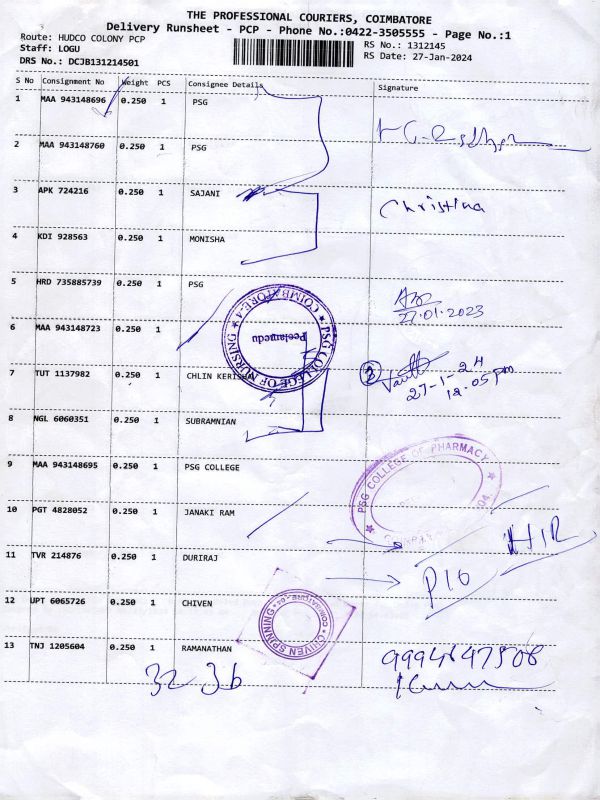 THE PROFESSIONAL COURIERS, COIMBATORE
Delivery Runsheet - PCP - Phone No.:0422-3505555 - Page No.:1
Route: HUDCO COLONY PCP
RS No.: 1312145
Staff: LOGU
RS Date: 27-Jan-2024
DRS No.: DCJB131214501
S No Consignment No Weight PCS Consignee Details Signature
1 MAA 943148696 0.250 1 PSG
2 MAA 943148760 0.250 1 PSG
3 APK 724216 0.250 1 SAJANI Christina
4 KDI 928563 0.250 1 MONISHA
5 HRD 735885739 0.250 1 PSG
27.01.2023
PSG COLLEGE OF NURSING
COIMBATORE-4
Peelamedu
6 MAA 943148723 0.250 1
7 TUT 1137982 0.250 1 CHLIN KERISHA
3
27-1-24
12.05pm
8 NGL 6060351 0.250 1 SUBRAMNIAN
9 MAA 943148695 0.250 1 PSG COLLEGE
PSG COLLEGE OF PHARMACY
10 PGT 4828052 0.250 1 JANAKI RAM
11 TVR 214876 0.250 1 DURIRAJ
12 UPT 6065726 0.250 1 CHIVEN
CHIVEN SPINNING
13 TNJ 1205604 0.250 1 RAMANATHAN
3236